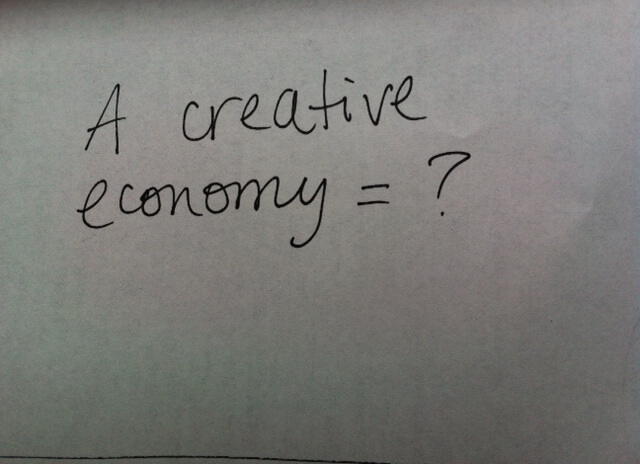 A creative
economy = ?